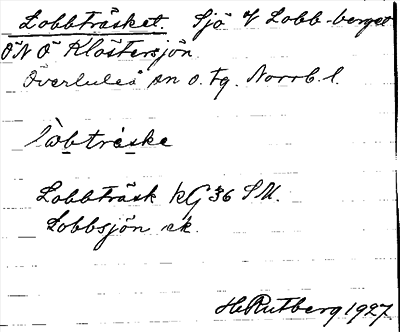 Lobbträsket. Sjö V Lobb-berget
ÖNÖ Klöstersjön
Överluleå sn o. tg. Norrb. l.
lòbtrèske
Lobbträsk KG 36 SU.
Lobbsjön ek.
H. Rutberg 1927